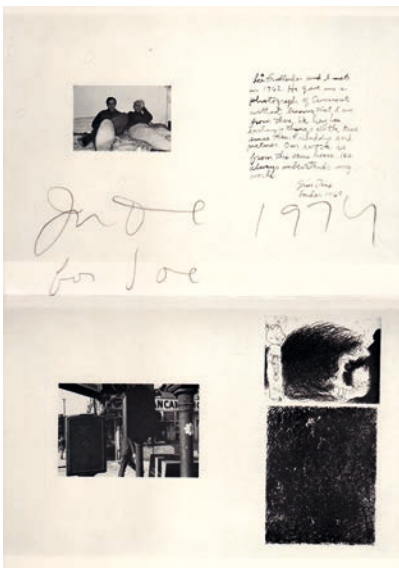 Lee Friedlander and I met
in 1962. He gave me a
photograph of Cincinnati
without knowing that I was
from there. We have been
things all the time
since then. Friendship and
pictures. Our work is
from the same house. He
always understands my
world.
Jim Dine
London 1969
Jim Dine 1974
for Joe
NCA